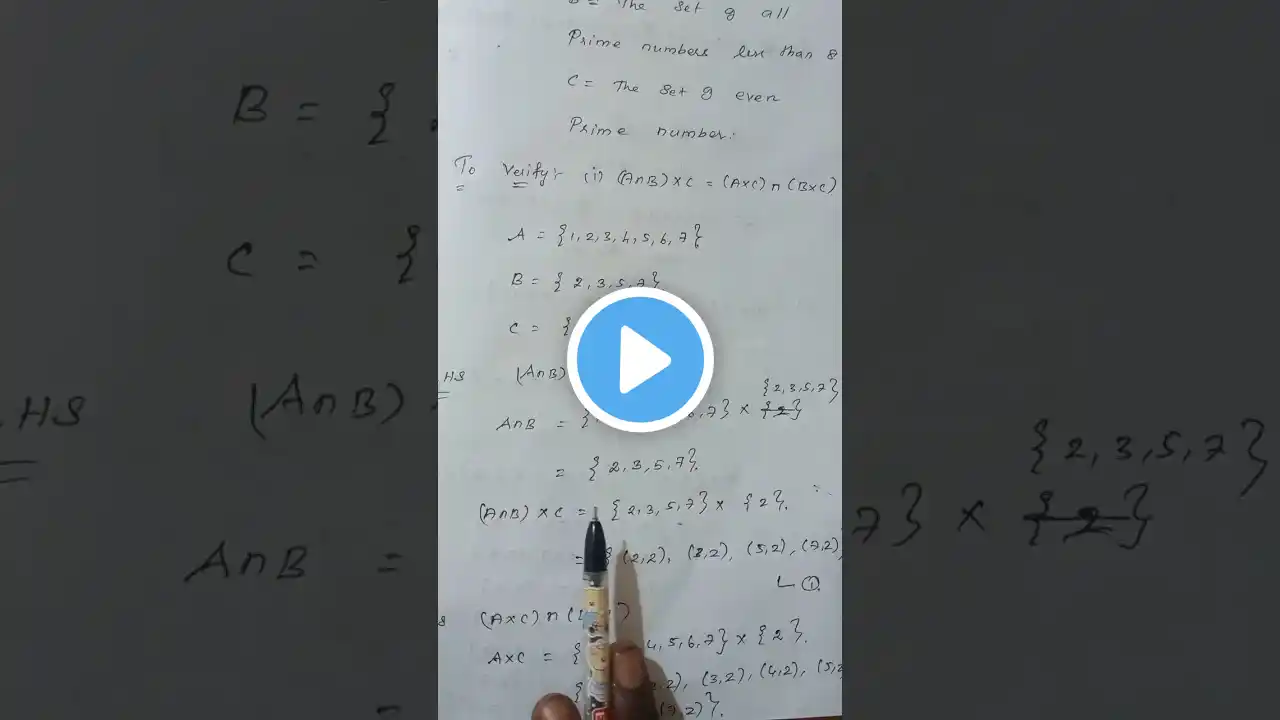 B = The set of all
Prime numbers less than 8
C = The set of even
Prime number.
To Verify:- (i) (A∩B)×C = (A×C)∩(B×C)
A = {1,2,3,4,5,6,7}
B = {2,3,5,7}
C = {
HS (A∩B)
{2,3,5,7}
A∩B = { 6,7} × {2}
= {2,3,5,7}.
(A∩B)×C = {2,3,5,7} × {2}.
= {(2,2), (3,2), (5,2), (7,2)
①
(A×C)∩( )
A×C = { 4,5,6,7} × {2}.
{ 2), (3,2), (4,2), (5,2
,2)}.
B = {
C = {
.HS (A∩B)
{2,3,5,7}
A∩B = 7} × {2}